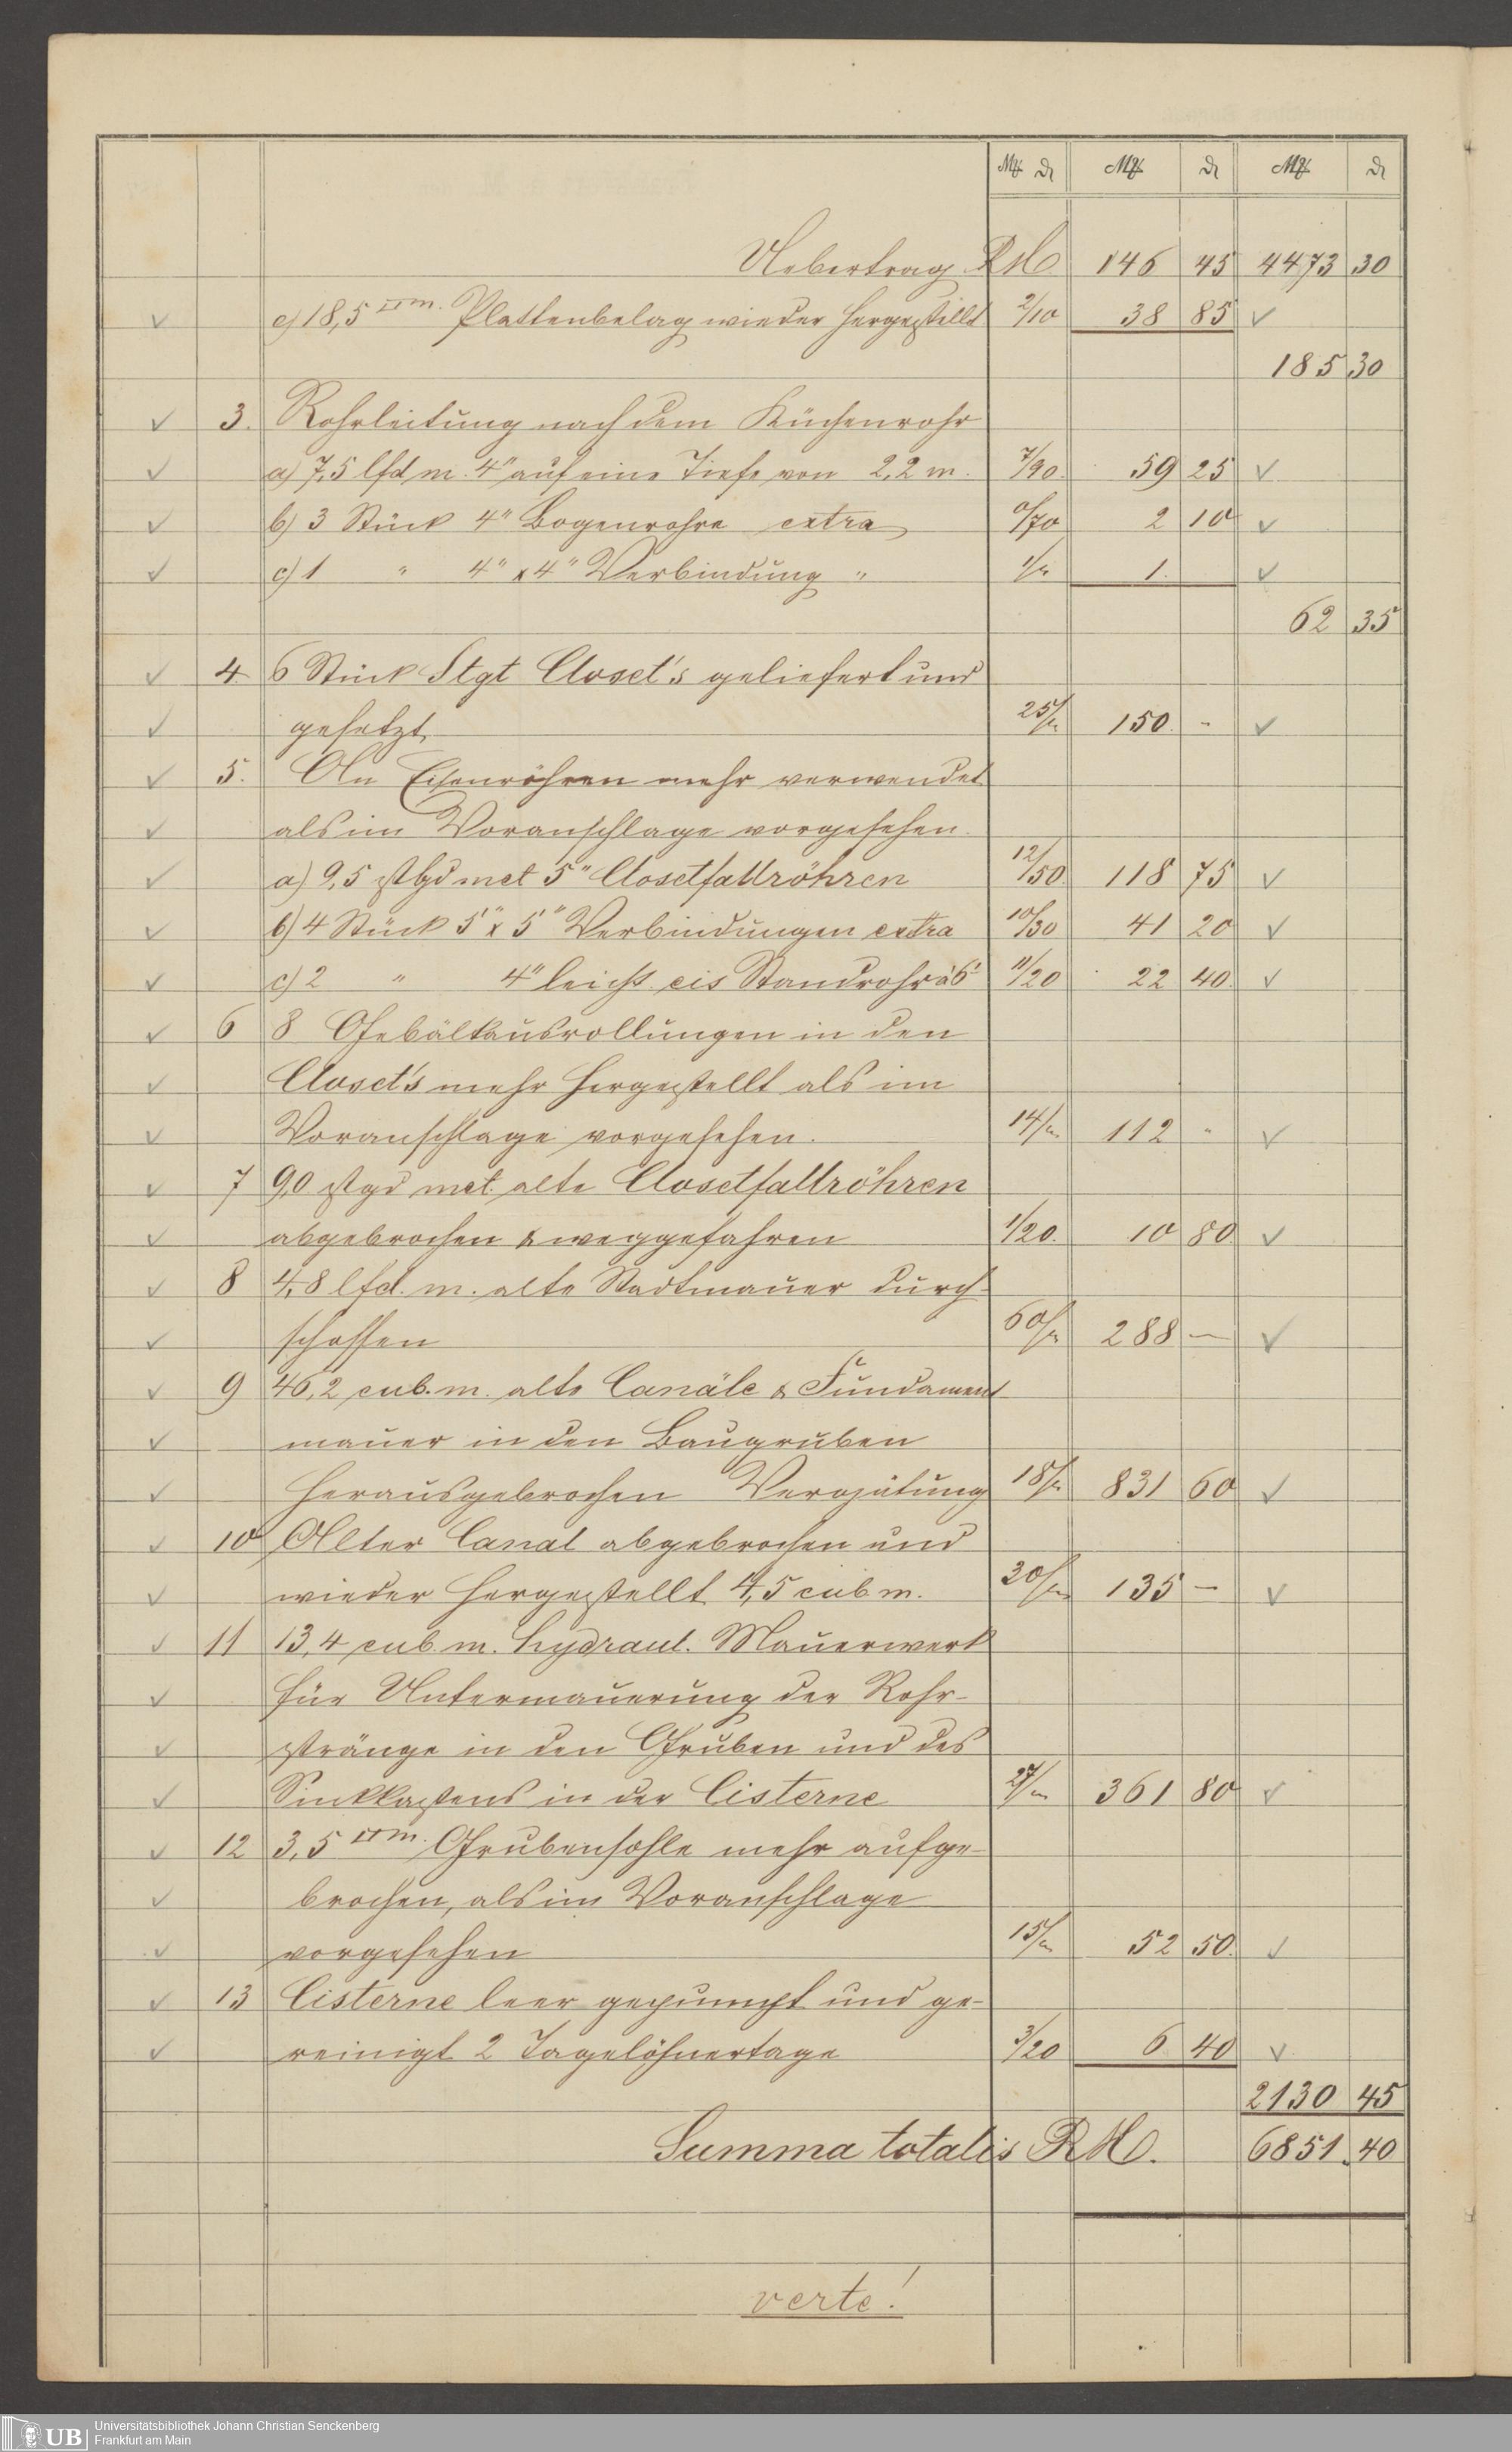 M ₰ M ₰ M ₰
Uebertrag RM 146 45 4473 30
e) 18,5 □m. Plattenbelag wieder hergestellt 2/10 38 85
185 30
3. Rohrleitung nach dem Küchenrohr
a) 7,5 lfd m. 4" auf eine Tiefe von 2,2 m. 7/90 59 25
b) 3 Stück 4" Bogenrohre extra 0/70 2 10
c) 1 " 4" x 4" Verbindung " 1/- 1.
62 35
4 6 Stück Stgt Closet's geliefert und
gesetzt 25/- 150. -
5. An Eisenröhren mehr verwendet
als im Voranschlage vorgesehen.
a) 9,5 stgd met 5" Closetfallröhren 12/50 118 75
b) 4 Stück 5" x 5" Verbindungen extra 10/30 41 20
c) 2 " 4" leicht. eis Standrohr à 6' 11/20 22 40
6 8 Gebälkausrollungen in den
Closet's mehr hergestellt als im
Voranschlage vorgesehen. 14/- 112 -
7 9,0 stgd met. alte Closetfallröhren
abgebrochen & weggefahren 1/20. 10 80
8 4,8 lfd. m. alte Stadtmauer durch-
schossen 60/- 288 —
9 46,2 cub. m. alte Canäle & Fundament
mauer in den Baugruben
herausgebrochen Vergütung 18/- 831 60
10 Alter Canal abgebrochen und
wieder hergestellt 4,5 cub m. 30/- 135 —
11 13,4 cub. m. hydraul. Mauerwerk
für Untermauerung der Rohr-
stränge in den Gruben und des
Sinkkastens in der Cisterne 27/- 361 80
12 3,5 □m. Grubensohle mehr aufge-
brochen, als im Voranschlage
vorgesehen 15/- 52 50.
13 Cisterne leer gepumpt und ge-
reinigt 2 Tagelöhnertage 3/20 6 40
2130 45
Summa totalis RM. 6851. 40
verte!
UB
Universitätsbibliothek Johann Christian Senckenberg
Frankfurt am Main